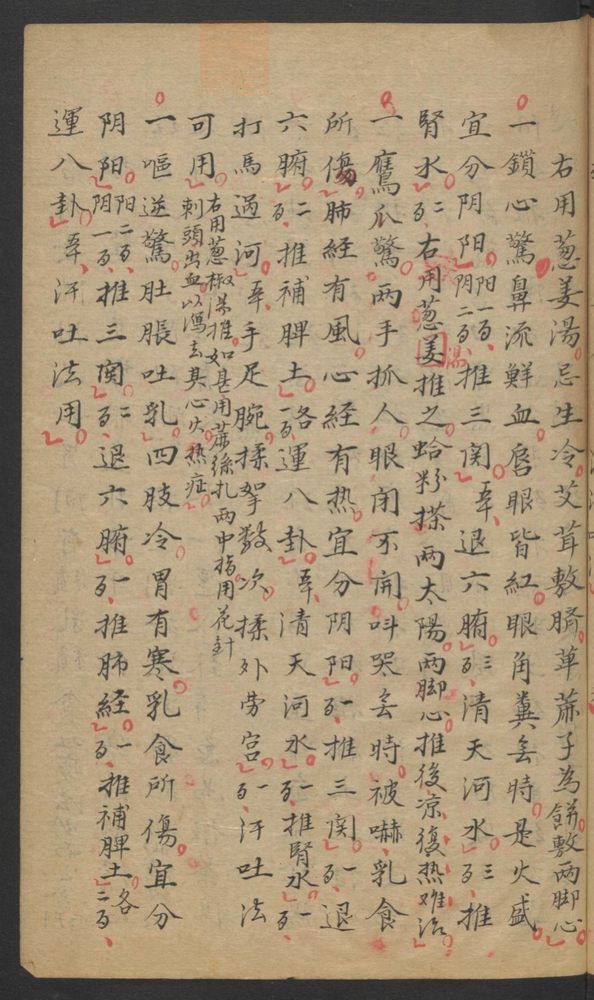 右用葱姜湯忌生冷艾茸敷臍萆蔴子為餅敷兩脚心
一鎖心驚鼻流鮮血唇眼皆紅眼角糞多時是火盛
宜分阴阳阳一百阴二百推三関退六腑三百清天河水三百推
腎水二百右用葱姜湯推之蛤粉搽兩太陽兩脚心推後凉復热难治
一鷹爪驚兩手抓人眼闭不開呌哭多時被嚇乳食
所傷肺經有風心経有热宜分阴阳一百推三関一百退
六腑二百推補脾土各一百運八卦清天河水一百推腎水一百
打馬過河手足腕揉拏数次揉外劳宮一百汗吐法
可用右用葱椒湯推如甚用蔴絲扎两中指用花針刺頭出血以瀉去其心火热症
一嘔逆驚肚脹吐乳四肢冷胃有寒乳食所傷宜分
阴阳阳二百阴一百推三関二百退六腑一百推肺経一百推補脾土各二百
運八卦汗吐法用